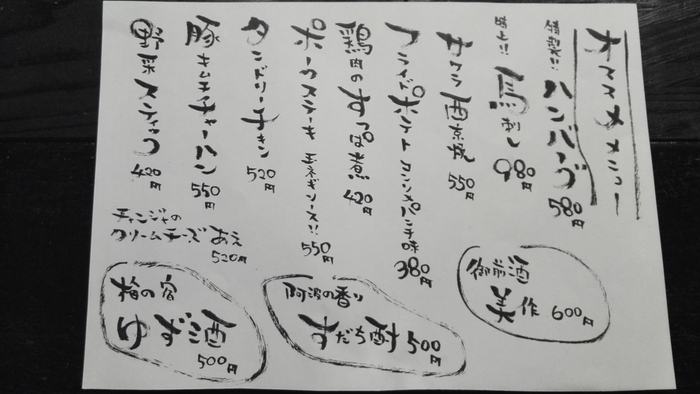 オススメメニュー
特製!! ハンバーグ 580円
馬刺し 980円
サワラ西京焼 550円
フライドポテト クリスマスパンチ味 380円
鶏肉のすっぱ煮 420円
ポークステーキ 玉ネギソース!! 550円
タンドリーチキン 520円
豚キムチチャーハン 550円
野菜スティック 420円
チャンジャの
クリームチーズあえ
520円
御前酒
美作 600円
阿波の香り
すだち酎 500円
梅の宿
ゆず酒
500円